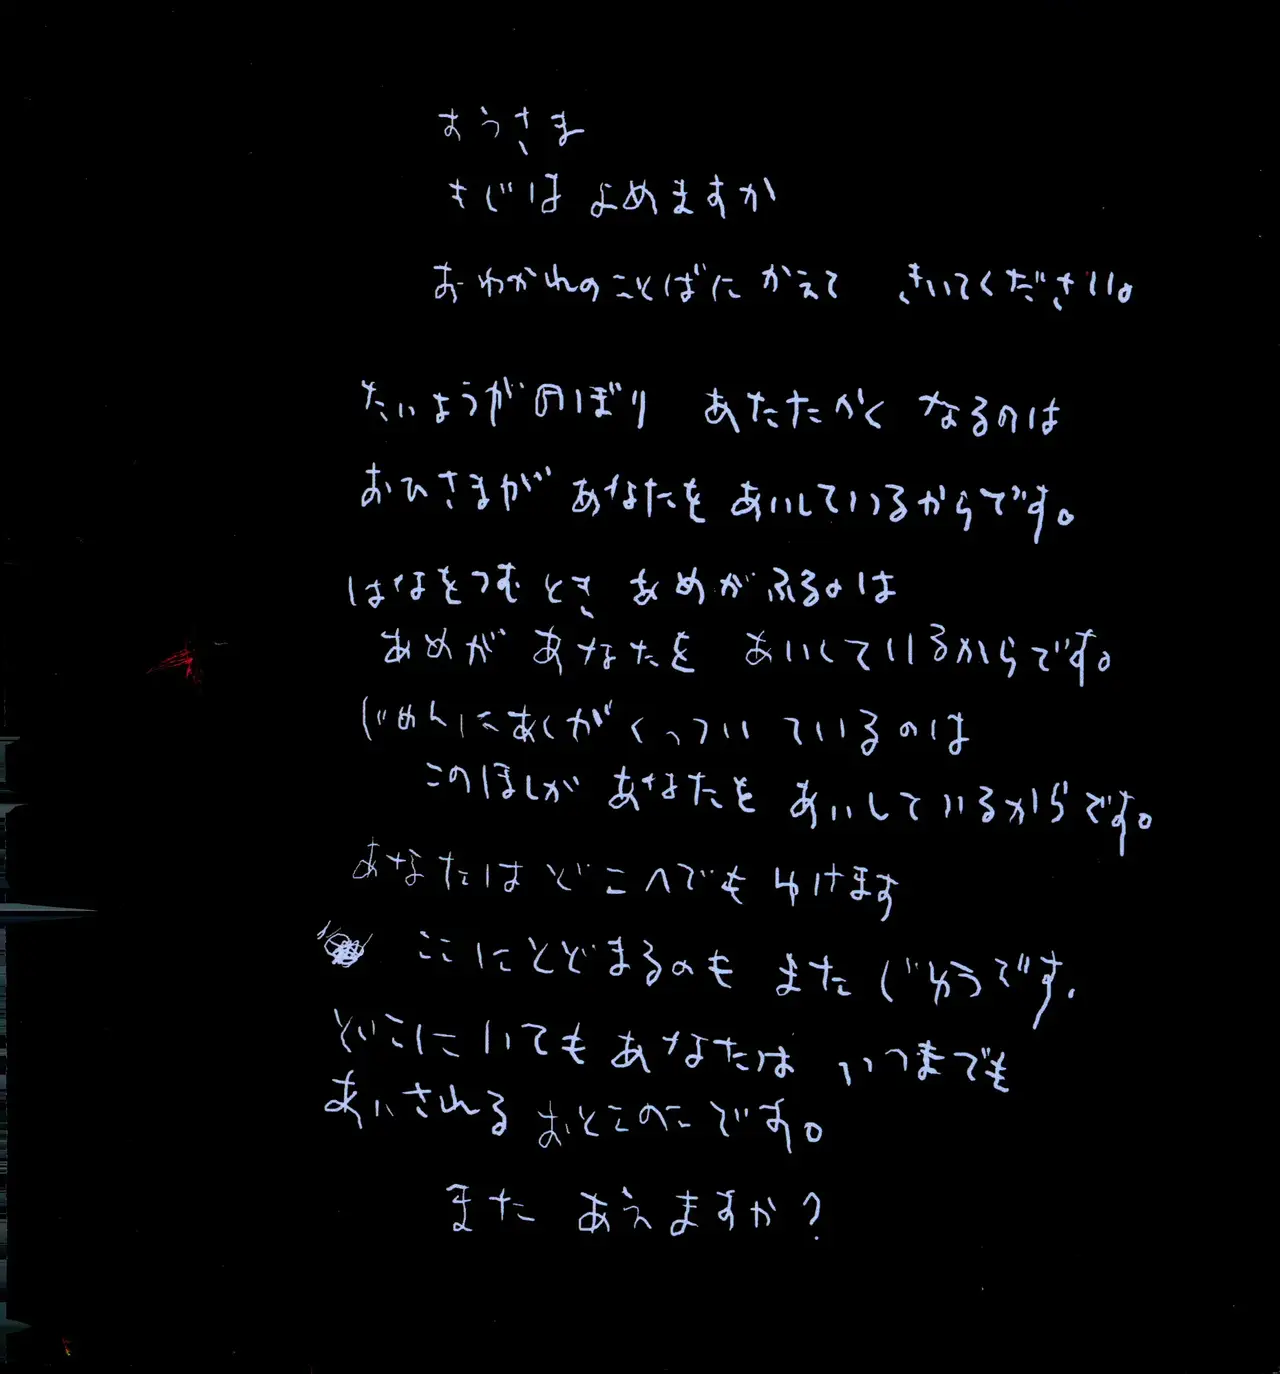 おうさま
もじは よめますか
おわかれのことばに かえて きいてください。
たいようがのぼり あたたかく なるのは
おひさまが あなたを あいしているからです。
はなをつむとき あめがふるのは
あめが あなたを あいしているからです。
じめんにあしがくっついているのは
このほしが あなたを あいしているからです。
あなたは どこへでも ゆけます
ここにとどまるのも また じゆうです.
どこに いても あなたは いつまでも
あいされる おとこのこです。
また あえますか?